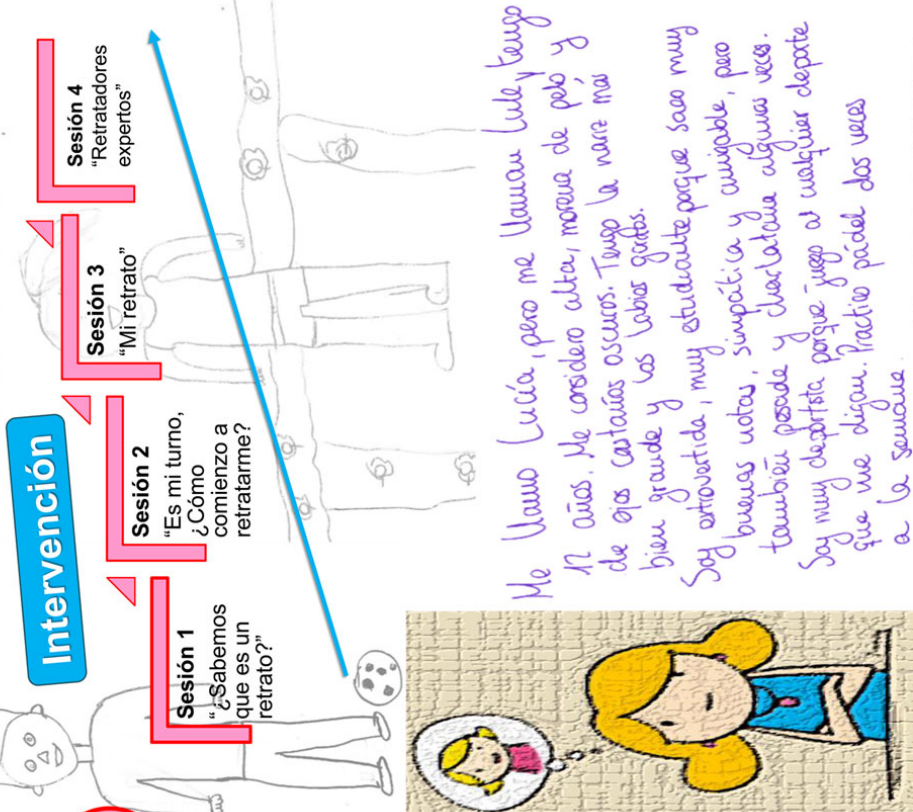 Intervención
Sesión 1
“ ¿Sabemos
que es un
retrato?”
Sesión 2
“Es mi turno,
¿Cómo
comienzo a
retratarme?
Sesión 3
“Mi retrato”
Sesión 4
“Retratadores
expertos”
Me llamo Lucía, pero me llaman Lule, y tengo
12 años. Me considero alta, morena de pelo y
de ojos castaños oscuros. Tengo la nariz más
bien grande y los labios gordos.
Soy extrovertida, muy estudiante porque saco muy
buenas notas, simpática y amigable, pero
también pesada y charlatana algunas veces.
Soy muy deportista porque juego al cualquier deporte
que me digan. Practico pádel dos veces
a la semana.